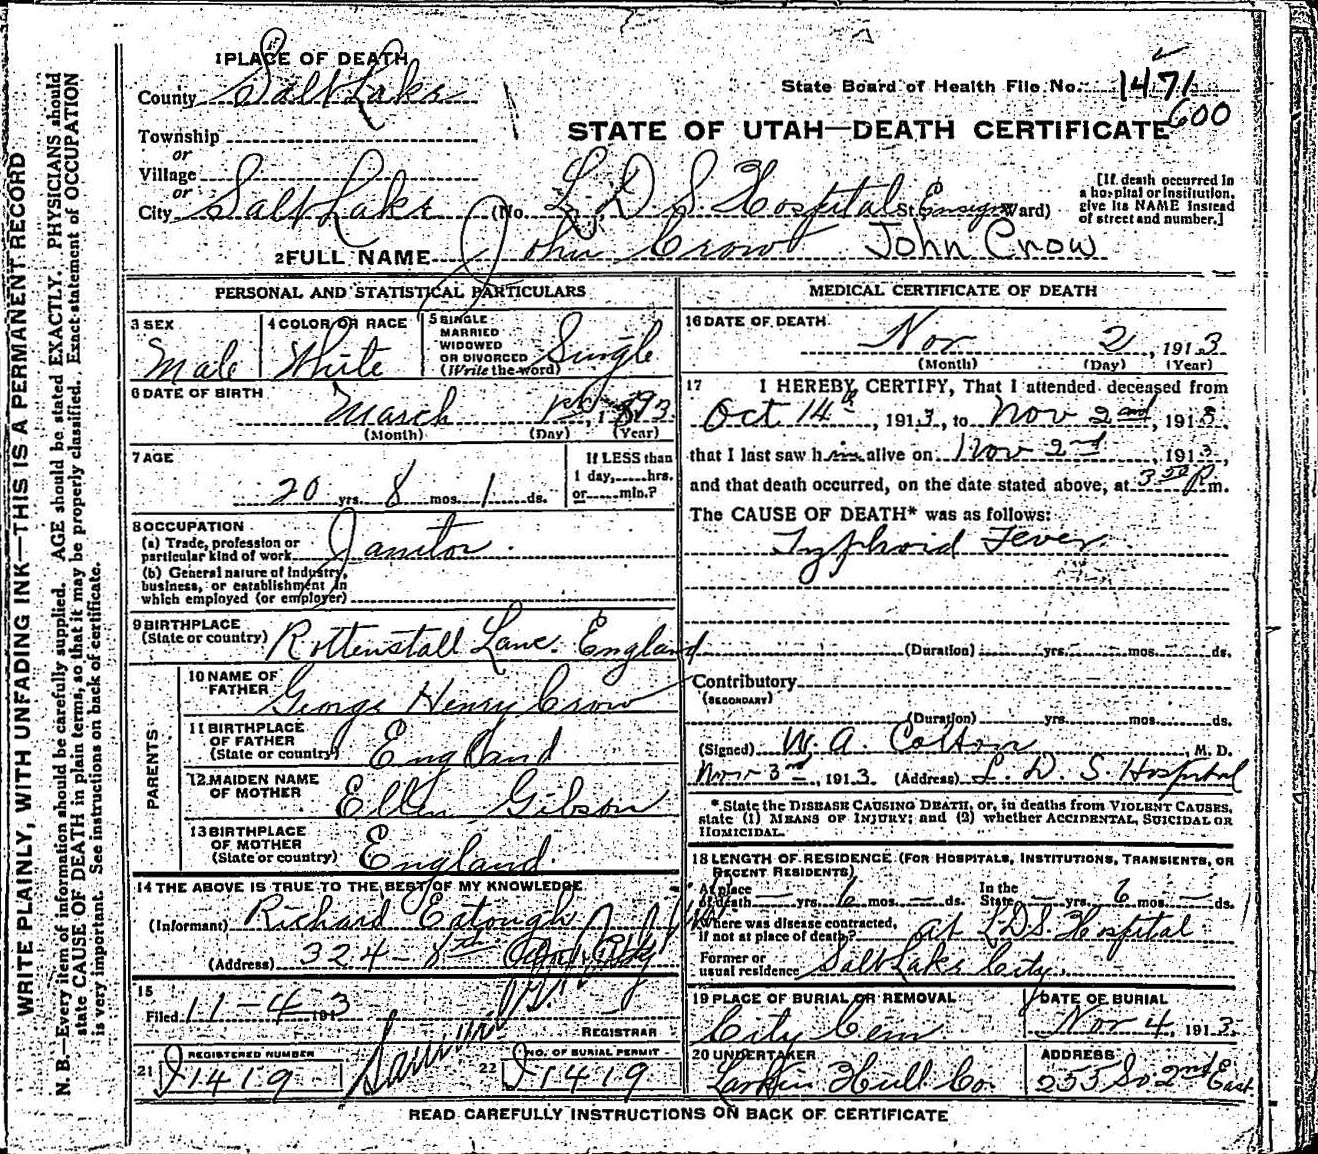 WRITE PLAINLY, WITH UNFADING INK—THIS IS A PERMANENT RECORD
N. B.—Every item of information should be carefully supplied. AGE should be stated EXACTLY. PHYSICIANS should
state CAUSE OF DEATH in plain terms, so that it may be properly classified. Exact statement of OCCUPATION
is very important. See instructions on back of certificate.
1 PLACE OF DEATH
County Salt Lake
State Board of Health File No. 1471
600
STATE OF UTAH—DEATH CERTIFICATE
Township
or
Village
or
City Salt Lake (No. L. D. S. Hospital St. Ensign Ward)
[If death occurred in
a hospital or institution,
give its NAME instead
of street and number.]
2 FULL NAME John Crow John Crow
PERSONAL AND STATISTICAL PARTICULARS
3 SEX
Male
4 COLOR OR RACE
White
5 SINGLE
MARRIED
WIDOWED
OR DIVORCED
(Write the word)
Single
6 DATE OF BIRTH
March 1st, 1893
(Month) (Day) (Year)
7 AGE
20 yrs. 8 mos. 1 ds.
If LESS than
1 day,......hrs.
or......min.?
8 OCCUPATION
(a) Trade, profession or
particular kind of work Janitor
(b) General nature of industry,
business, or establishment in
which employed (or employer)
9 BIRTHPLACE
(State or country) Rottenstall Lanc. England
PARENTS
10 NAME OF
FATHER George Henry Crow
11 BIRTHPLACE
OF FATHER
(State or country) England
12 MAIDEN NAME
OF MOTHER Ellen Gibson
13 BIRTHPLACE
OF MOTHER
(State or country) England.
14 THE ABOVE IS TRUE TO THE BEST OF MY KNOWLEDGE
(Informant) Richard Eatough
(Address) 324 - 8th City
15
Filed 11-4 1913
REGISTRAR
REGISTERED NUMBER
21 J1419
NO. OF BURIAL PERMIT
22 J1419
MEDICAL CERTIFICATE OF DEATH
16 DATE OF DEATH
Nov 2, 1913
(Month) (Day) (Year)
17 I HEREBY CERTIFY, That I attended deceased from
Oct 14th, 1913, to Nov 2nd, 1913.
that I last saw him alive on Nov 2nd, 1913,
and that death occurred, on the date stated above, at 3 50 P m.
The CAUSE OF DEATH* was as follows:
Typhoid Fever
(Duration) yrs. mos. ds.
Contributory
(SECONDARY)
(Duration) yrs. mos. ds.
(Signed) W. A. Colton, M. D.
Nov 3rd, 1913. (Address) L. D. S. Hospital
* State the DISEASE CAUSING DEATH, or, in deaths from VIOLENT CAUSES,
state (1) MEANS OF INJURY; and (2) whether ACCIDENTAL, SUICIDAL OR
HOMICIDAL.
18 LENGTH OF RESIDENCE (FOR HOSPITALS, INSTITUTIONS, TRANSIENTS, OR
RECENT RESIDENTS)
At place
of death — yrs. 6 mos. — ds.
In the
State — yrs. 6 mos. — ds.
Where was disease contracted,
if not at place of death? at LDS Hospital
Former or
usual residence Salt Lake City.
19 PLACE OF BURIAL OR REMOVAL
City Cem
DATE OF BURIAL
Nov 4, 1913.
20 UNDERTAKER
Larkin Hull Co.
ADDRESS
255 So 2nd East
READ CAREFULLY INSTRUCTIONS ON BACK OF CERTIFICATE